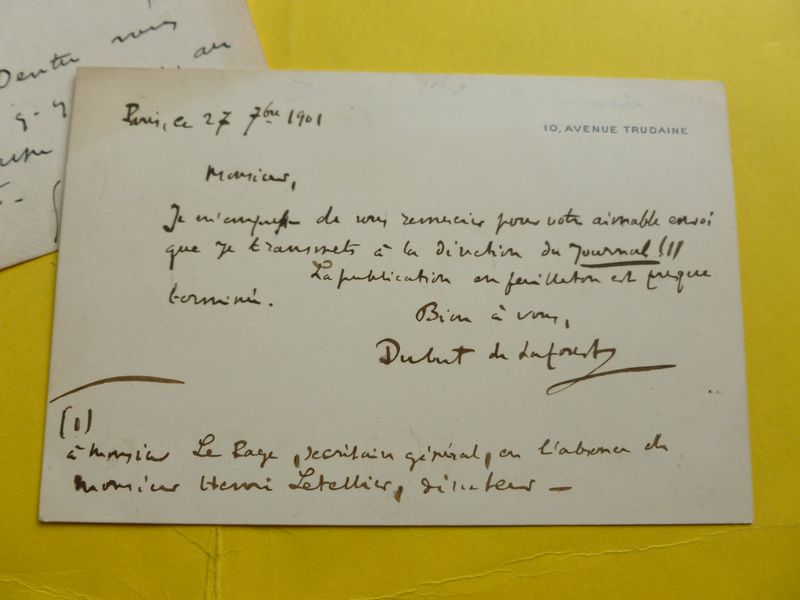 Dentu
au
Paris, ce 27 7bre 1901
10, AVENUE TRUDAINE
Monsieur,
Je m'empresse de vous remercier pour votre aimable envoi
que je transmets à la direction du Journal (1)
La publication en feuilleton est presque
terminée.
Bien à vous,
Dubut de Laforest
(1)
à Monsieur Le Page, secrétaire général, en l'absence de
Monsieur Henri Letellier, directeur —